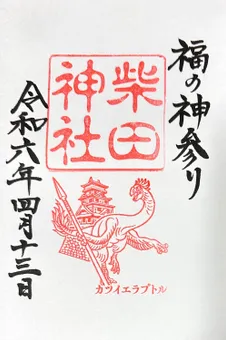 福の神参り
柴田
神社
カツイエラプトル
令和六年四月十三日